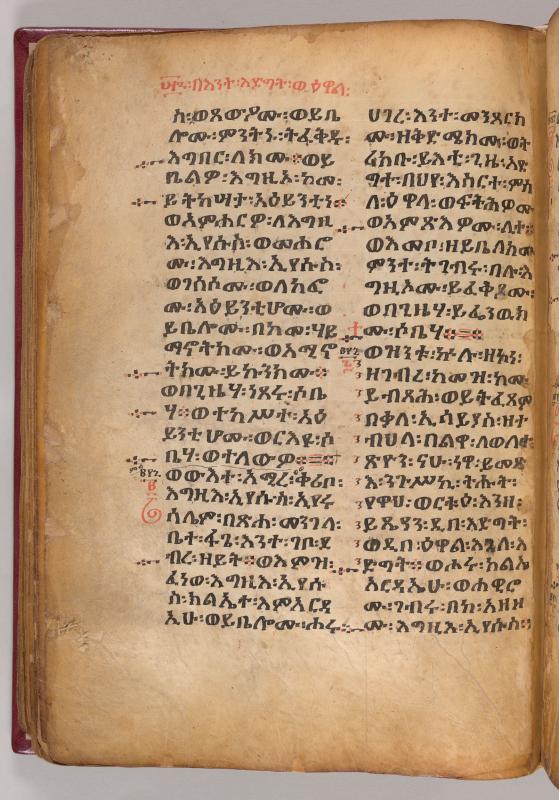 በእንተ፡እድግት፡ወዕዋል፡
ከ፡ወጸውዖሙ፡ወይቤ
ሎሙ፡ምንትኑ፡ትፈቅዱ፡
እግበር፡ለክሙ።ወይ
ቤልዎ፡እግዚኦ፡ከመ፡
ይትከሠታ፡አዕይንቲነ።
ወአምሐርዎ፡ለእግዚ
እ፡ኢየሱስ፡ወመሐሮ
ሙ፡እግዚእ፡ኢየሱስ፡
ወገሰሶሙ፡ወለከፎ
ሙ፡አዕይንቲሆሙ፡ወ
ይቤሎሙ፡በከመ፡ሃይ
ማኖትክሙ፡ወአሚኖ
ትክሙ፡ይኩንክሙ።
ወበጊዜሃ፡ነጸሩ፡ሶቤ
ሃ።ወተከሥተ፡አዕ
ይንቲሆሙ፡ወርእዩ፡ሶ
ቤሃ፡ወተለውዎ።
ወውእተ፡አሚረ፡ቅሪቦ፡
እግዚእ፡ኢየሱስ፡ኢየሩ
ሳሌም፡በጽሐ፡መንገለ፡
ቤተ፡ፋጌ፡እንተ፡ገቦ፡ደ
ብረ፡ዘይት።ወእምዝ፡
ፈነወ፡እግዚእ፡ኢየሱ
ስ፡ክልኤተ፡እምአርዳ
ኢሁ፡ወይቤሎሙ፡ሐሩ፡
ሀገረ፡እንተ፡መንጸርክ
ሙ፡ዘቅድሜክሙ፡ወት
ረክቡ፡ይእቲ፡ጊዜ፡እድ
ግተ፡በህየ፡እስርተ፡ምስ
ለ፡ዕዋላ፡ወፍትሕዎሙ
ወአምጽእዎሙ፡ሊተ።
ወእመቦ፡ዘይቤለክሙ
ምንተ፡ትገብሩ፡በሉ፡እ
ግዚኦሙ፡ይፈቅዶሙ፡
ወበጊዜሃ፡ይፌንዉክ
ሙ፡ሶቤሃ።
ወዝንቱ፡ኵሉ፡ዘኮነ፡
ዘገብረ፡ከመዝ፡ከመ፡
ይብጻሕ፡ወይትፈጸም
በቃለ፡ኢሳይያስ፡ዘተ
ብህለ፡በልዋ፡ለወለተ፡
ጽዮን፡ናሁ፡ነዋ፡ይመጽ
እ፡ንጉሥኪ፡ትሑት፡
የዋህ፡ወርቱዕ፡እንዘ፡
ይጼዓን፡ዲበ፡እድግት፡
ወዲበ፡ዕዋል፡እጓለ፡እ
ድግት።ወሖሩ፡ክልኤ
አርዳኢሁ፡ወሐዊሮ
ሙ፡ገብሩ፡በከ፡አዘዘ
ሙ፡እግዚእ፡ኢየሱስ፡